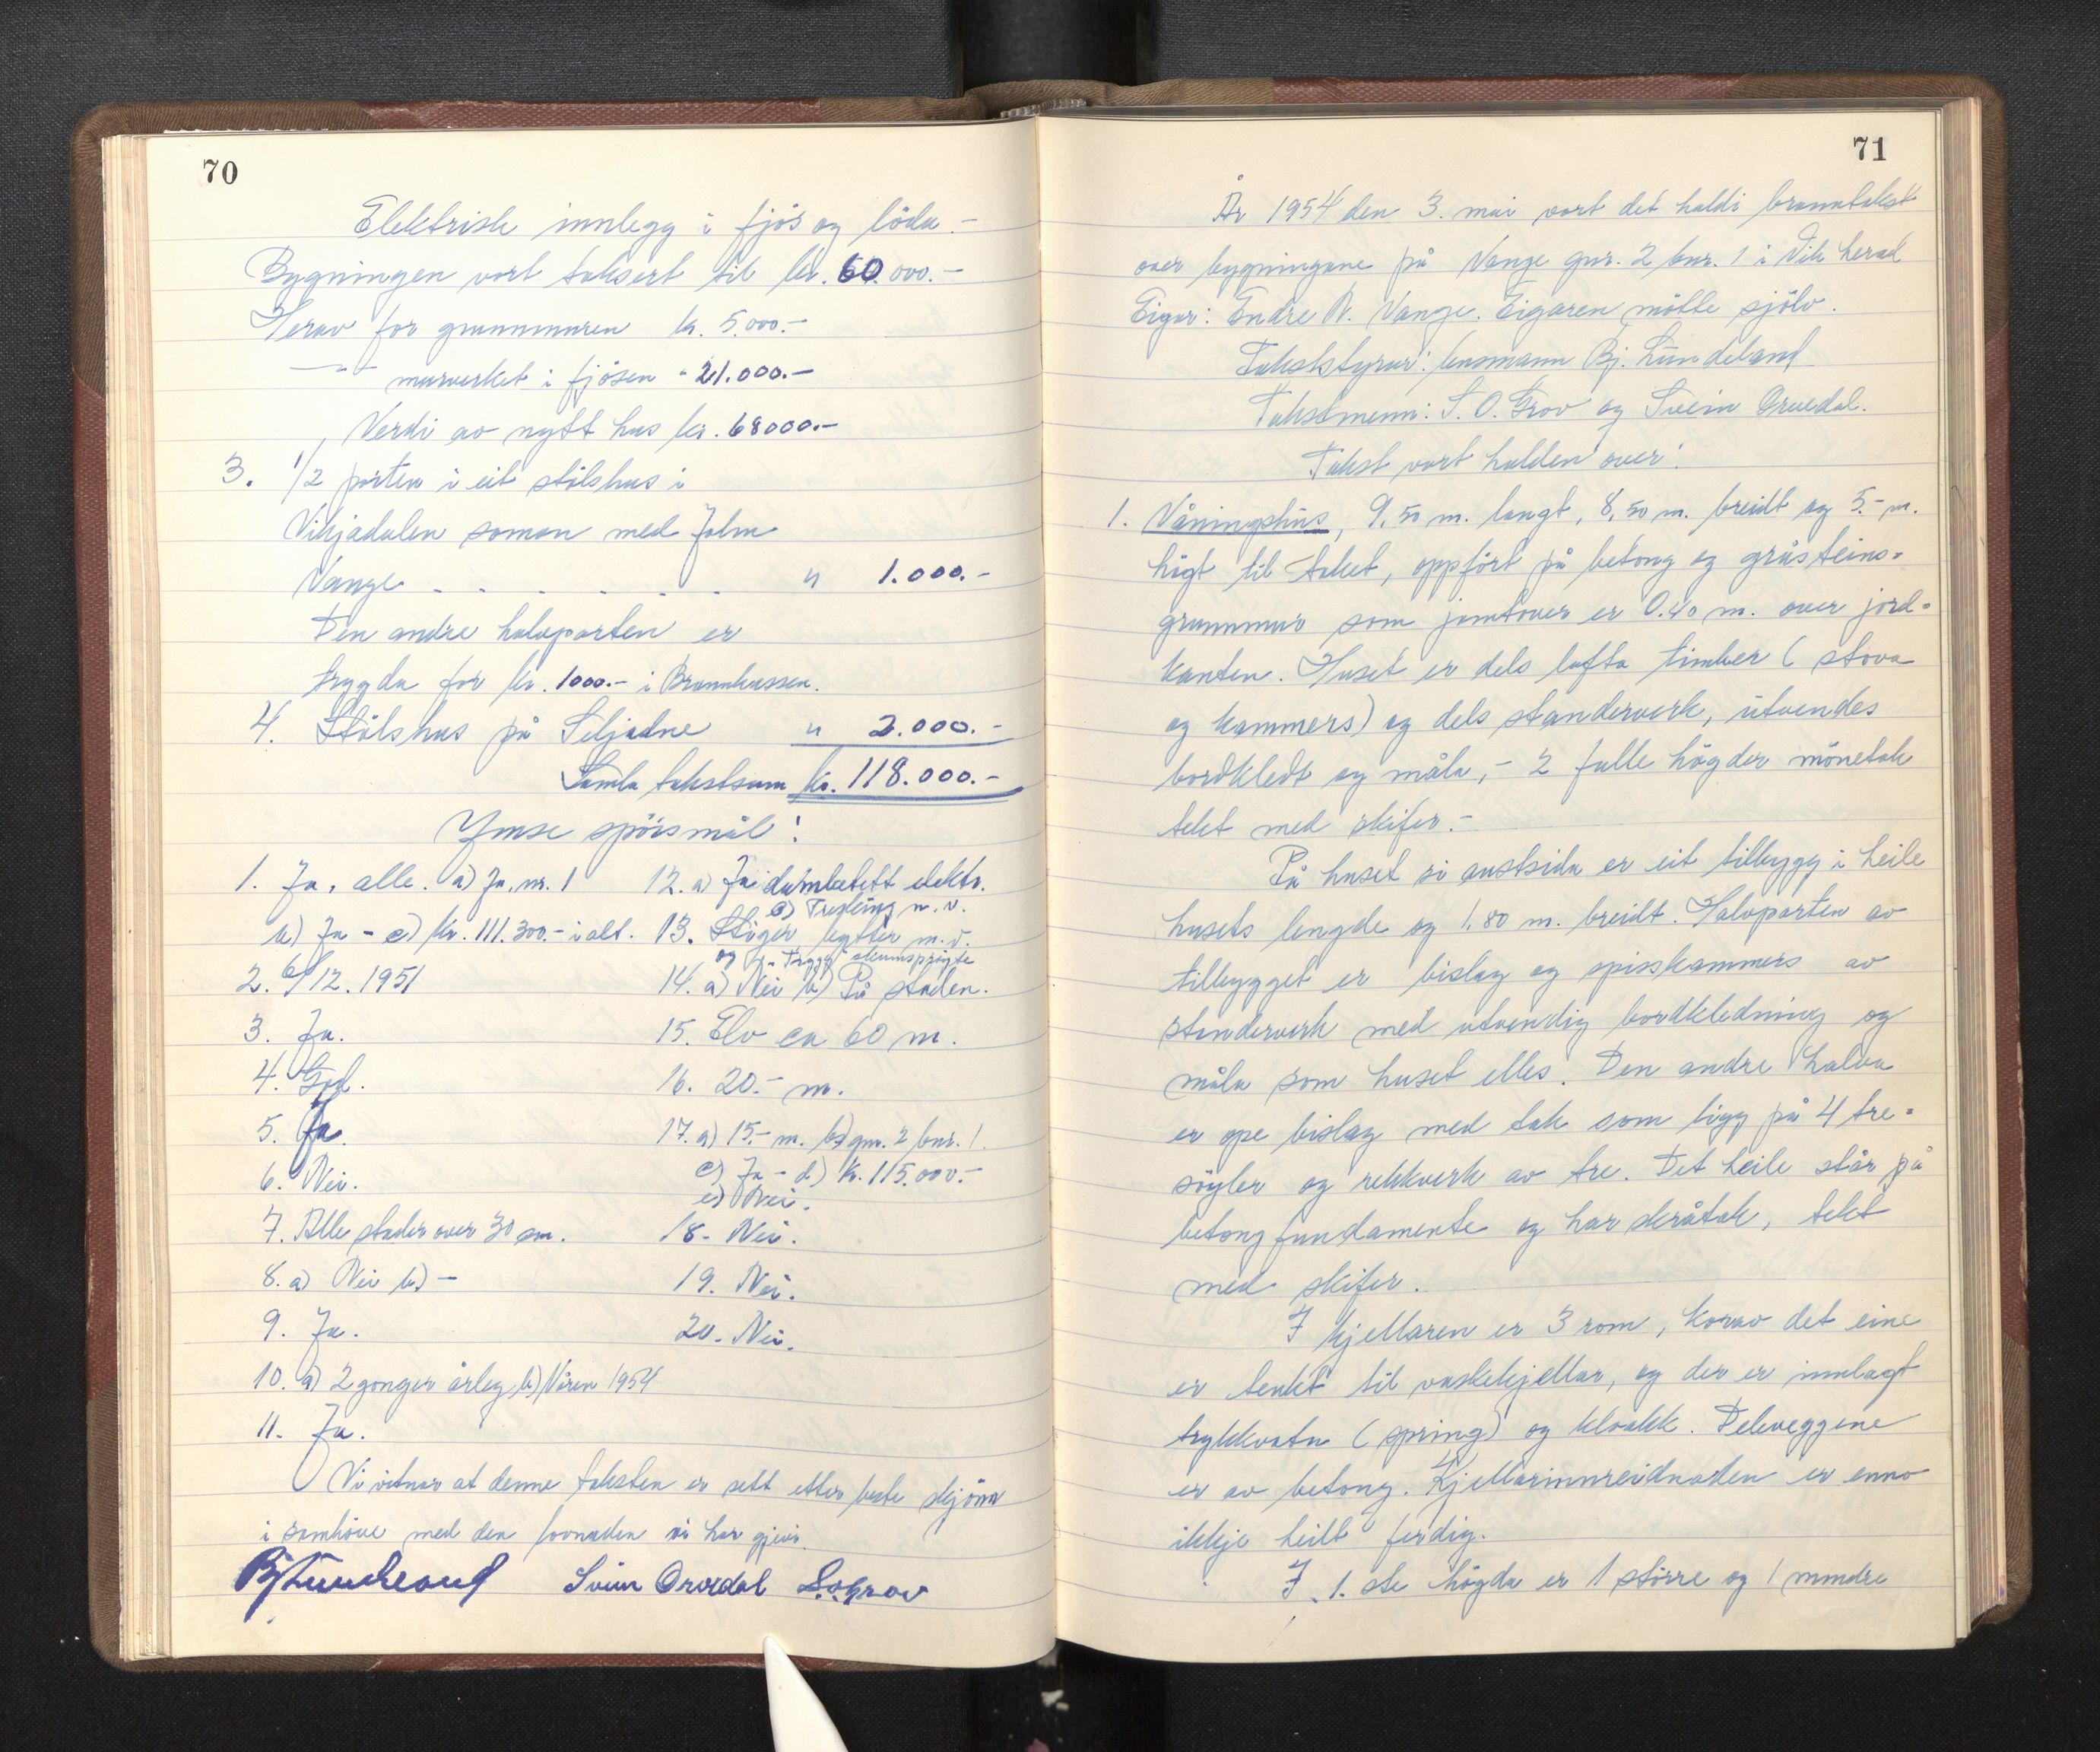 70
Elektrisk innlegg i fjös og löda.-
Bygningen vort taksert til kr. 60.000.-
Herav for grunnmuren kr. 5.000.-
—"— murverket i fjösen " 21.000.-
Verdi av nytt hus kr. 68000.-
3. 1/2 parten i eit stölshus i
Vikjadalen saman med John
Vange . . . . . . " 1.000.-
Den andre halvparten er
trygda for kr. 1000.- i Brannkassen.
4. Stölshus på Seljadne " 2.000.-
Samla takstsum kr. 118.000.-
Ymse spörsmål:
1. Ja, alle. a) Ja, nr. 1
b) Ja - c) kr. 111.300.- i alt.
2. 6/12. 1951
3. Ja.
4. God.
5. Ja.
6. Nei.
7. Alle stader over 30 sm.
8. a) Nei b) -
9. Ja.
10. a) 2 gonger årleg b) Våren 1954
11. Ja.
12. a) Ja elektr.
13. Stiger bytter m.v.
og
14. a) Nei b) På staden.
15. Elv ca 60 m.
16. 20.- m.
17. a) 15.- m. b) gnr. 2 bnr. 1.
c) Ja - d) Kr. 115.000.-
e) Nei.
18. Nei.
19. Nei.
20. Nei.
Vi vitnar at denne taksten er sett etter beste skjönn
i samhöve med den lovnaden vi har gjevi.
Bj Lundeland Svein Orvedal S.O. Grov
71
År 1954 den 3. mai vart det haldi branntakst
over bygningane på Vange gnr. 2 bnr. 1 i Vik herad
Eigar: Endre N. Vange. Eigaren mötte sjölv.
Takststyrar: lensmann Bj. Lundeland
Takstmenn: S. O. Grov og Svein Orvedal.
Takst vart halden over:
1. Våningshus, 9,50 m. langt, 8,50 m. breidt og 5.- m.
högt til taket, oppfört på betong og gråsteins-
grunnmur som jamtover er 0.40 m. over jord-
kanten. Huset er dels lafta timber (stova
og kammers) og dels standerverk, utvendes
bordkledt og måla, - 2 fulle högder mönetak
tekt med skifer.-
På huset si austsida er eit tilbygg i heile
husets lengde og 1.80 m. breidt. Halvparten av
tilbygget er bislag og spisskammers av
standerverk med utvendig bordkledning og
måla som huset elles. Den andre halva
er ope bislag med tak som ligg på 4 tre-
söyler og rekkverk av tre. Det heile står på
betongfundamente og har skråtak, tekt
med skifer.
I kjellaren er 3 rom, korav det eine
er tenkt til vaskekjellar, og der er innlagt
trykkvatn (spring) og kloakk. Deleveggene
er av betong. Kjellarinnreidnaden er enno
ikkje heilt ferdig.
I 1. ste högda er 1 större og 1 mindre